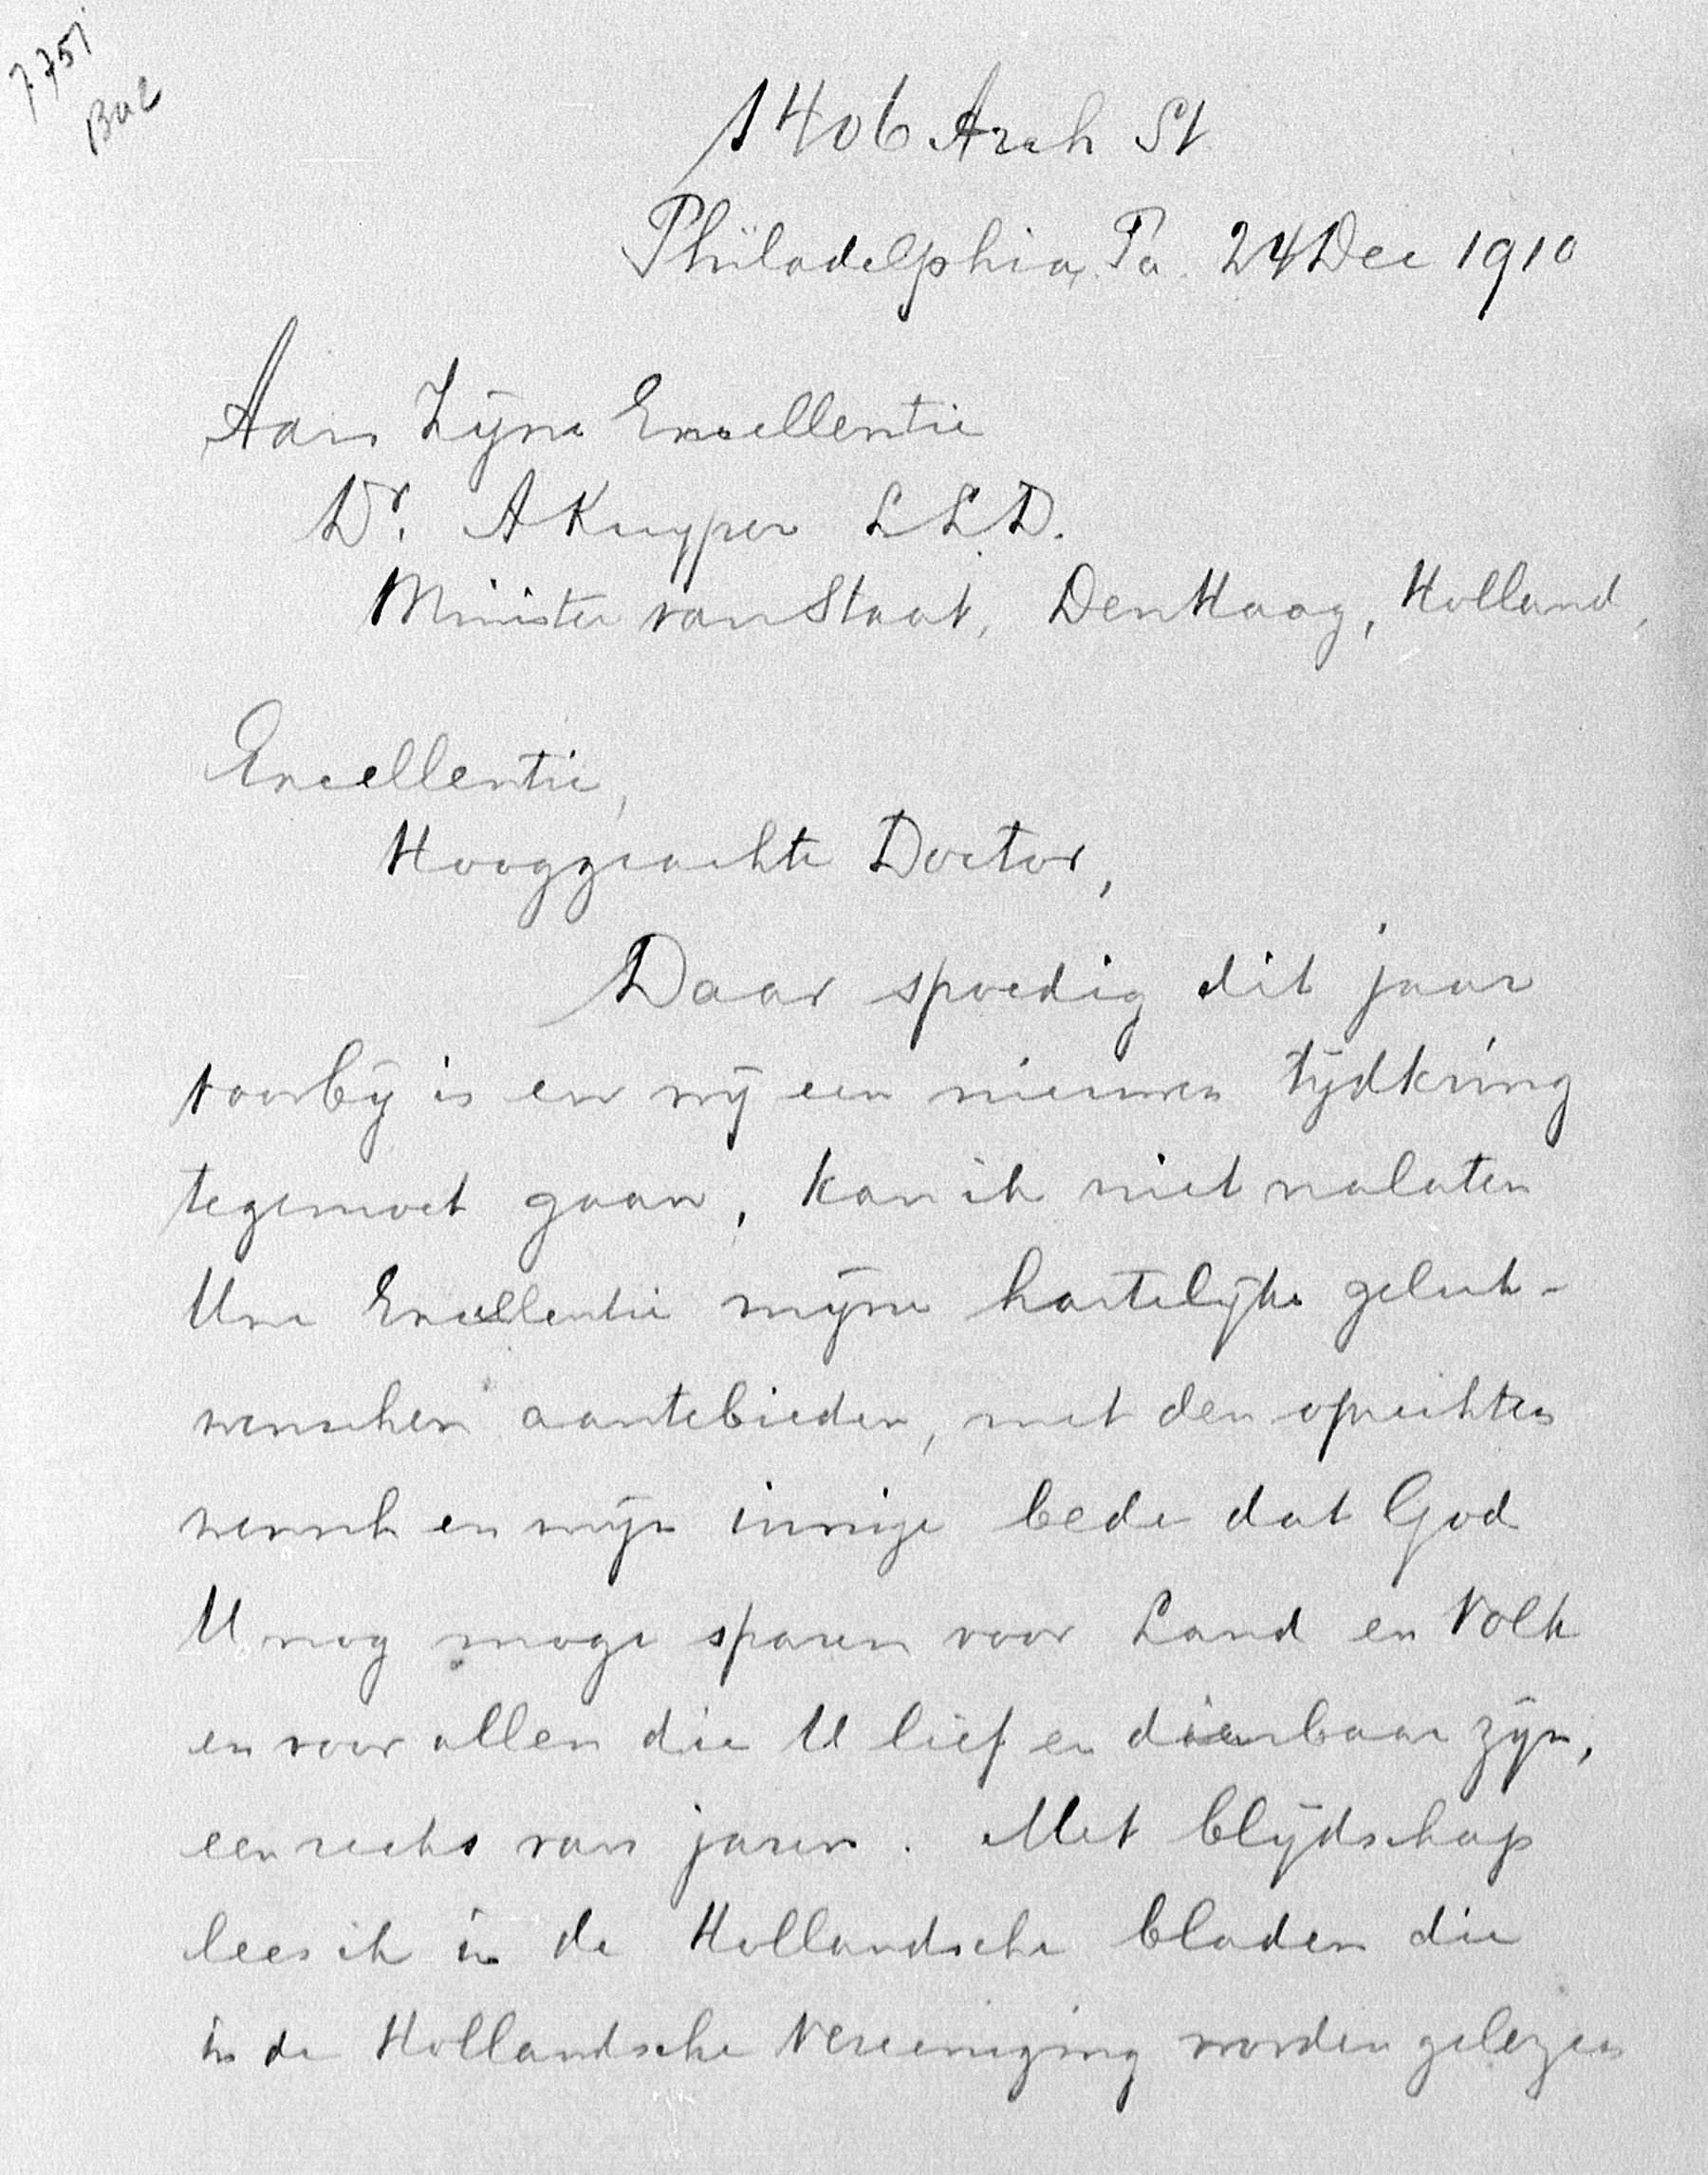 7751
1406 Arch St
Philadelphia, Pa. 24 Dec 1910
Aan Zijne Excellentie
Dr. A Kuyper L L D.
Minister van Staat, Den Haag, Holland,
Excellentie,
Hooggeachte Doctor,
Daar spoedig dit jaar
voorbij is en wij een nieuwen tijdkring
tegemoet gaan, kan ik niet nalaten
Uwe Excellentie mijne hartelijke geluk-
wenschen aantebieden, met den oprechten
wensch en mijn innige bede dat God
U nog moge sparen voor Land en Volk
en voor allen die U lief en dierbaar zijn,
een reeks van jaren. Met blijdschap
lees ik in de Hollandsche bladen die
in de Hollandsche Vereeniging worden gelezen